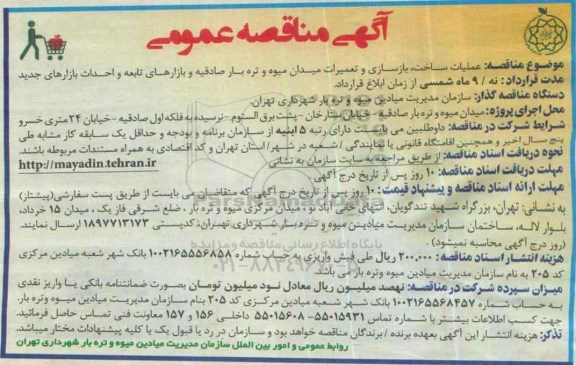 آگهی مناقصه عمومی
موضوع مناقصه: عملیات ساخت، بازسازی و تعمیرات میدان میوه و تره بار صادقیه و بازارهای تابعه و احداث بازارهای جدید
مدت قرارداد: نه / ۹ ماه شمسی از زمان ابلاغ قرارداد.
دستگاه مناقصه گذار: سازمان مدیریت میادین میوه و تره بار شهرداری تهران.
محل اجرای پروژه: میدان میوه و تره بار صادقیه - خیابان ستارخان - پشت برق آلستوم - نرسیده به فلکه اول صادقیه - خیابان ۲۴ متری خسرو
شرایط شرکت در مناقصه: داوطلبین می بایست دارای رتبه ۵ ابنیه از سازمان برنامه و بودجه و حداقل یک سابقه کار مشابه طی
پنج سال اخیر و همچنین اقامتگاه قانونی یا نمایندگی / شعبه در شهر / استان تهران و کد اقتصادی به همراه مستندات مربوطه باشند.
نحوه دریافت اسناد مناقصه: از طریق مراجعه به سایت سازمان به نشانی http://mayadin.tehran.ir
مهلت دریافت اسناد مناقصه: ۱۰ روز پس از تاریخ درج آگهی
مهلت ارائه اسناد مناقصه و پیشنهاد قیمت: ۱۰ روز پس از تاریخ درج آگهی که متقاضیان می بایست از طریق پست سفارشی (پیشتاز)
به نشانی: تهران، بزرگراه شهید تندگویان، انتهای خانی آباد نو، میدان مرکزی میوه و تره بار، ضلع شرقی فاز یک، میدان ۱۵ خرداد،
بلوار لاله، ساختمان سازمان مدیریت میادین میوه و تره بار شهرداری تهران، کدپستی ۱۸۹۷۷۱۳۱۷۳ ارسال نمایند.
(روز درج آگهی محاسبه نمیشود)
هزینه انتشار اسناد مناقصه: ۲۰۰,۰۰۰ ریال طی فیش واریزی به حساب شماره ۱۰۰۲۱۶۵۵۵۶۸۵۸ بانک شهر شعبه میادین مرکزی
کد ۲۰۵ به نام سازمان مدیریت میادین میوه وتره بار می باشد.
میزان سپرده شرکت در مناقصه: نهصد میلیون ریال معادل نود میلیون تومان بصورت ضمانتنامه بانکی یا واریز نقدی
به حساب شماره ۱۰۰۲۱۶۵۵۶۸۴۵۷ بانک شهر شعبه میادین مرکزی کد ۲۰۵ بنام سازمان مدیریت میادین میوه وتره بار.
جهت کسب اطلاعات بیشتر با شماره تماس ۵۵۰۱۵۹۳۱-۵۵۰۱۵۶۰۸ داخلی ۱۵۶ و ۱۵۷ معاونت فنی تماس حاصل فرمائید.
تذکر: هزینه انتشار این آگهی بعهده برنده / برندگان مناقصه خواهد بود و سازمان در رد یا قبول یک یا کلیه پیشنهادات مختار میباشد.
روابط عمومی و امور بین الملل سازمان مدیریت میادین میوه و تره بار شهرداری تهران